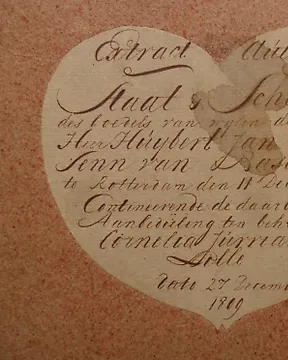 Extract Aut
Staat & Sche
des boedels van wylen d
Heer Huybert Jan
Senn van Bas
te Rotterdam den 11 Dec
Contineerende de daar
Aanbedeeling ten beh
Cornelia Jurria
Dato 27 Decem
1809